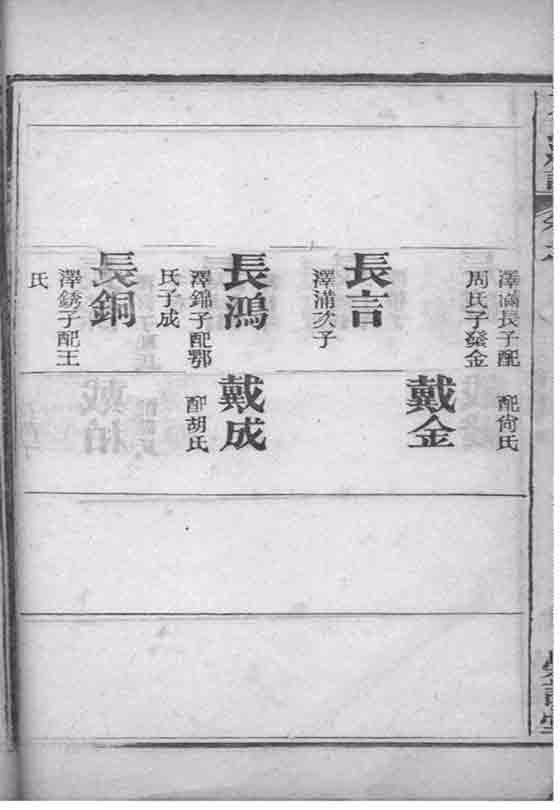 澤浦長子配
周氏子燊金
長言
澤浦次子
長鴻
澤錦子配鄂
氏子成
長銅
澤銹子配王
氏
配尙氏
戴金
戴成
配胡氏